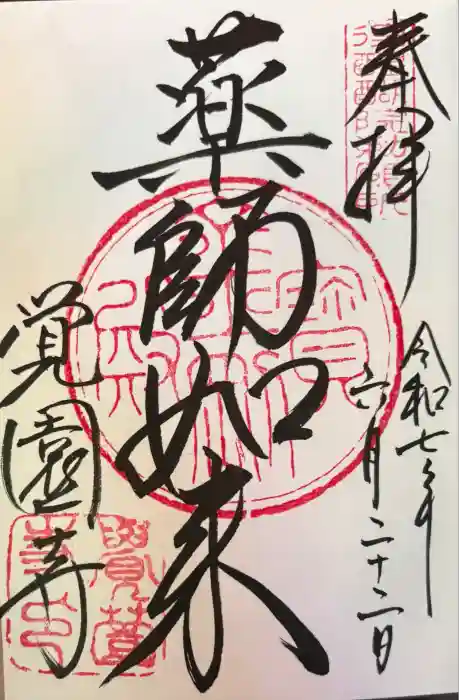 奉拝
令和七年
六月二十二日
薬師如来
覚園寺